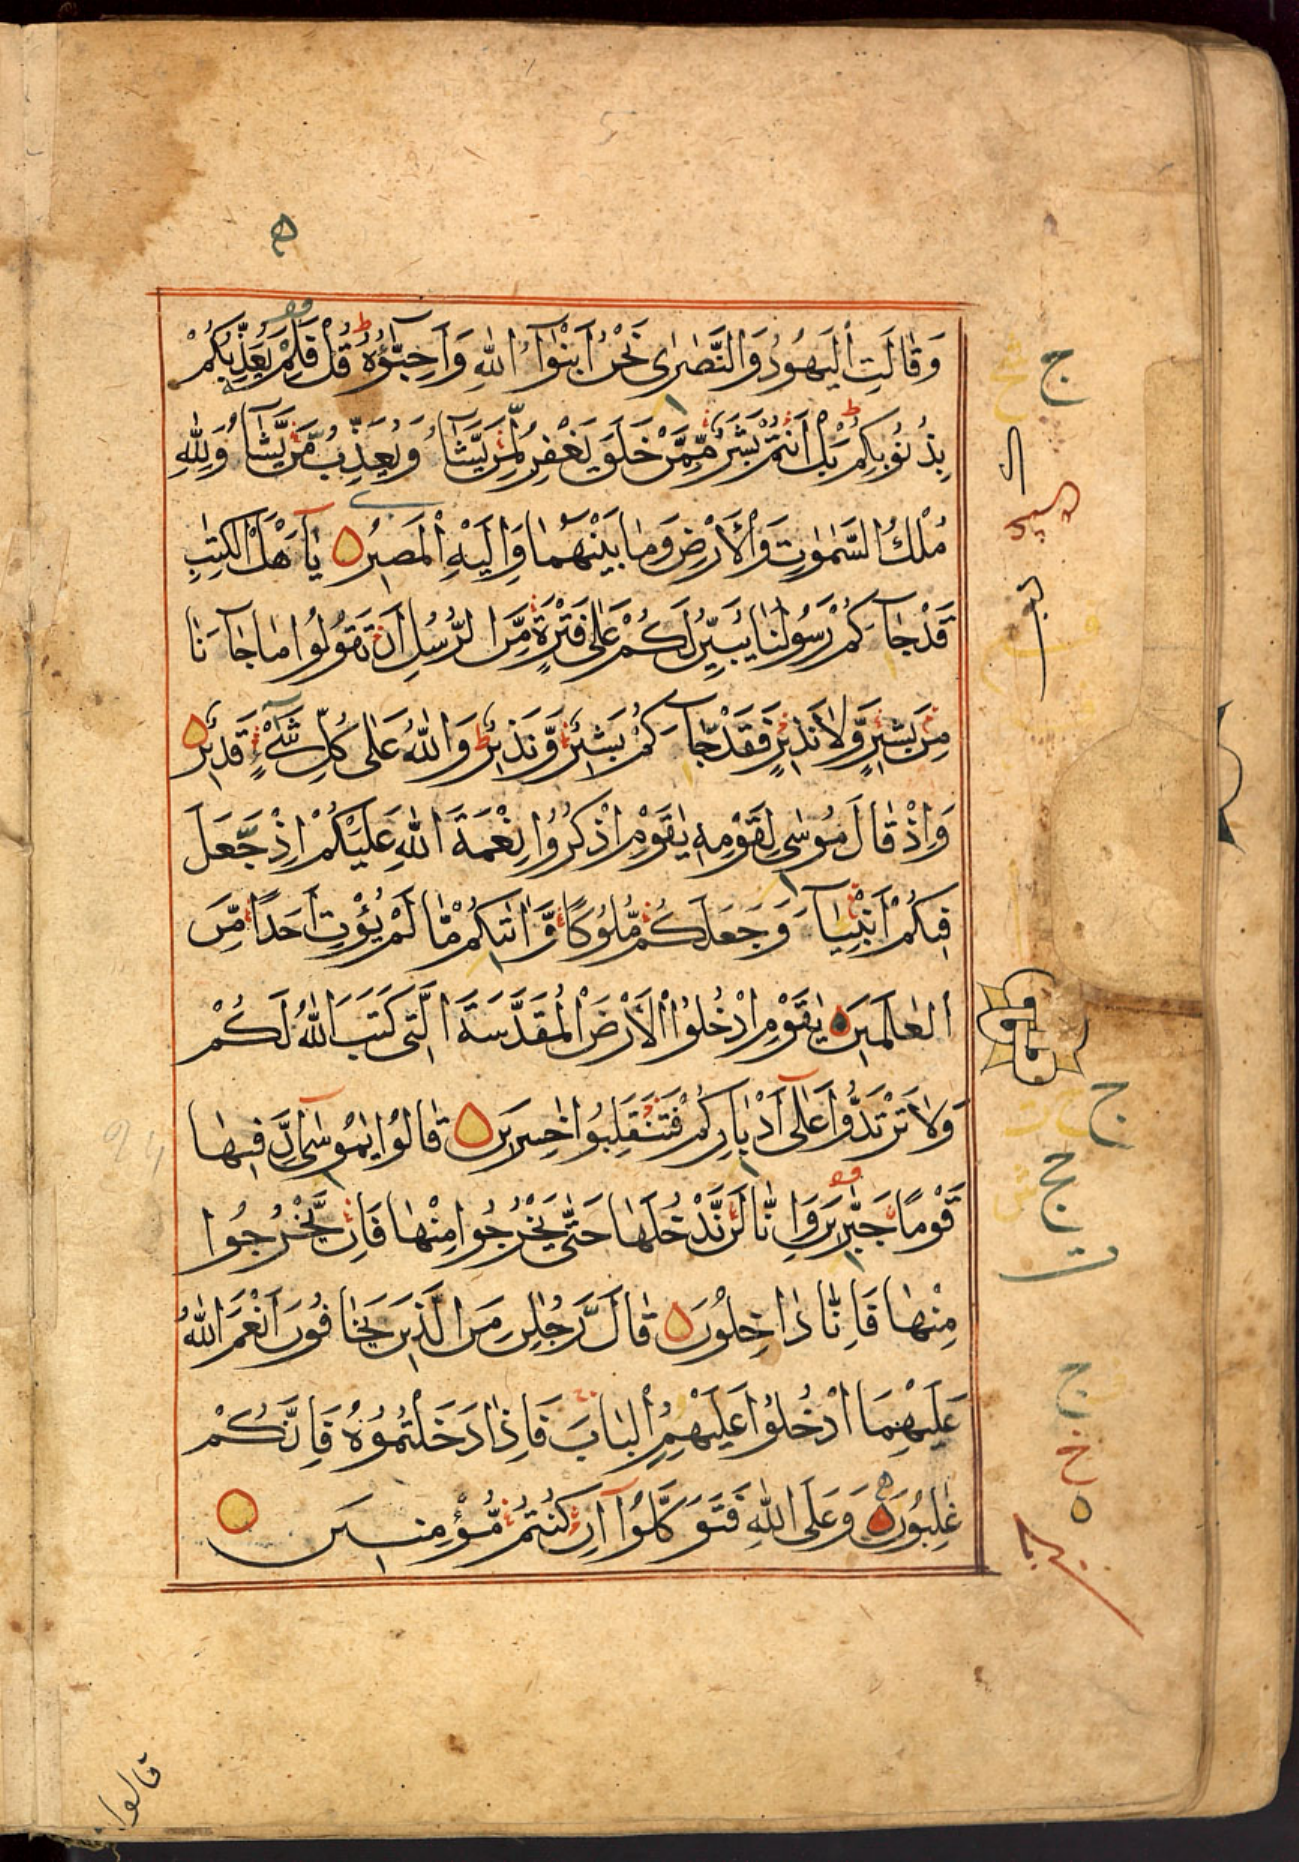 وَقَالَتِ الْيَهُودُ وَالنَّصٰرٰى نَحْنُ اَبْنٰۤؤُا اللّٰهِ وَاَحِبَّاۤؤُهٗ قُلْ فَلِمَ يُعَذِّبُكُمْ
بِذُنُوْبِكُمْ بَلْ اَنْتُمْ بَشَرٌ مِّمَّنْ خَلَقَ يَغْفِرُ لِمَنْ يَّشَآءُ وَيُعَذِّبُ مَنْ يَّشَآءُ وَلِلّٰهِ
مُلْكُ السَّمٰوٰتِ وَالْاَرْضِ وَمَا بَيْنَهُمَا وَاِلَيْهِ الْمَصِيْرُ يٰۤاَهْلَ الْكِتٰبِ
قَدْ جَآءَكُمْ رَسُوْلُنَا يُبَيِّنُ لَكُمْ عَلٰى فَتْرَةٍ مِّنَ الرُّسُلِ اَنْ تَقُوْلُوْا مَا جَآءَنَا
مِنْۢ بَشِيْرٍ وَّلَا نَذِيْرٍ فَقَدْ جَآءَكُمْ بَشِيْرٌ وَّنَذِيْرٌ وَاللّٰهُ عَلٰى كُلِّ شَىْءٍ قَدِيْرٌ
وَاِذْ قَالَ مُوْسٰى لِقَوْمِهٖ يٰقَوْمِ اذْكُرُوْا نِعْمَةَ اللّٰهِ عَلَيْكُمْ اِذْ جَعَلَ
فِيْكُمْ اَنْبِيَآءَ وَجَعَلَكُمْ مُّلُوْكًا وَّاٰتٰىكُمْ مَّا لَمْ يُؤْتِ اَحَدًا مِّنَ
الْعٰلَمِيْنَ يٰقَوْمِ ادْخُلُوا الْاَرْضَ الْمُقَدَّسَةَ الَّتِىْ كَتَبَ اللّٰهُ لَكُمْ
وَلَا تَرْتَدُّوْا عَلٰۤى اَدْبَارِكُمْ فَتَنْقَلِبُوْا خٰسِرِيْنَ قَالُوْا يٰمُوْسٰۤى اِنَّ فِيْهَا
قَوْمًا جَبَّارِيْنَ وَاِنَّا لَنْ نَّدْخُلَهَا حَتّٰى يَخْرُجُوْا مِنْهَا فَاِنْ يَّخْرُجُوْا
مِنْهَا فَاِنَّا دَاخِلُوْنَ قَالَ رَجُلٰنِ مِنَ الَّذِيْنَ يَخَافُوْنَ اَنْعَمَ اللّٰهُ
عَلَيْهِمَا ادْخُلُوْا عَلَيْهِمُ الْبَابَ فَاِذَا دَخَلْتُمُوْهُ فَاِنَّكُمْ
غٰلِبُوْنَ وَعَلَى اللّٰهِ فَتَوَكَّلُوْۤا اِنْ كُنْتُمْ مُّؤْمِنِيْنَ
قالوا